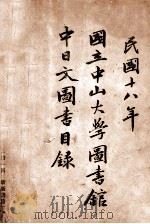 民國十八年
國立中山大學圖書館
中日文圖書目錄